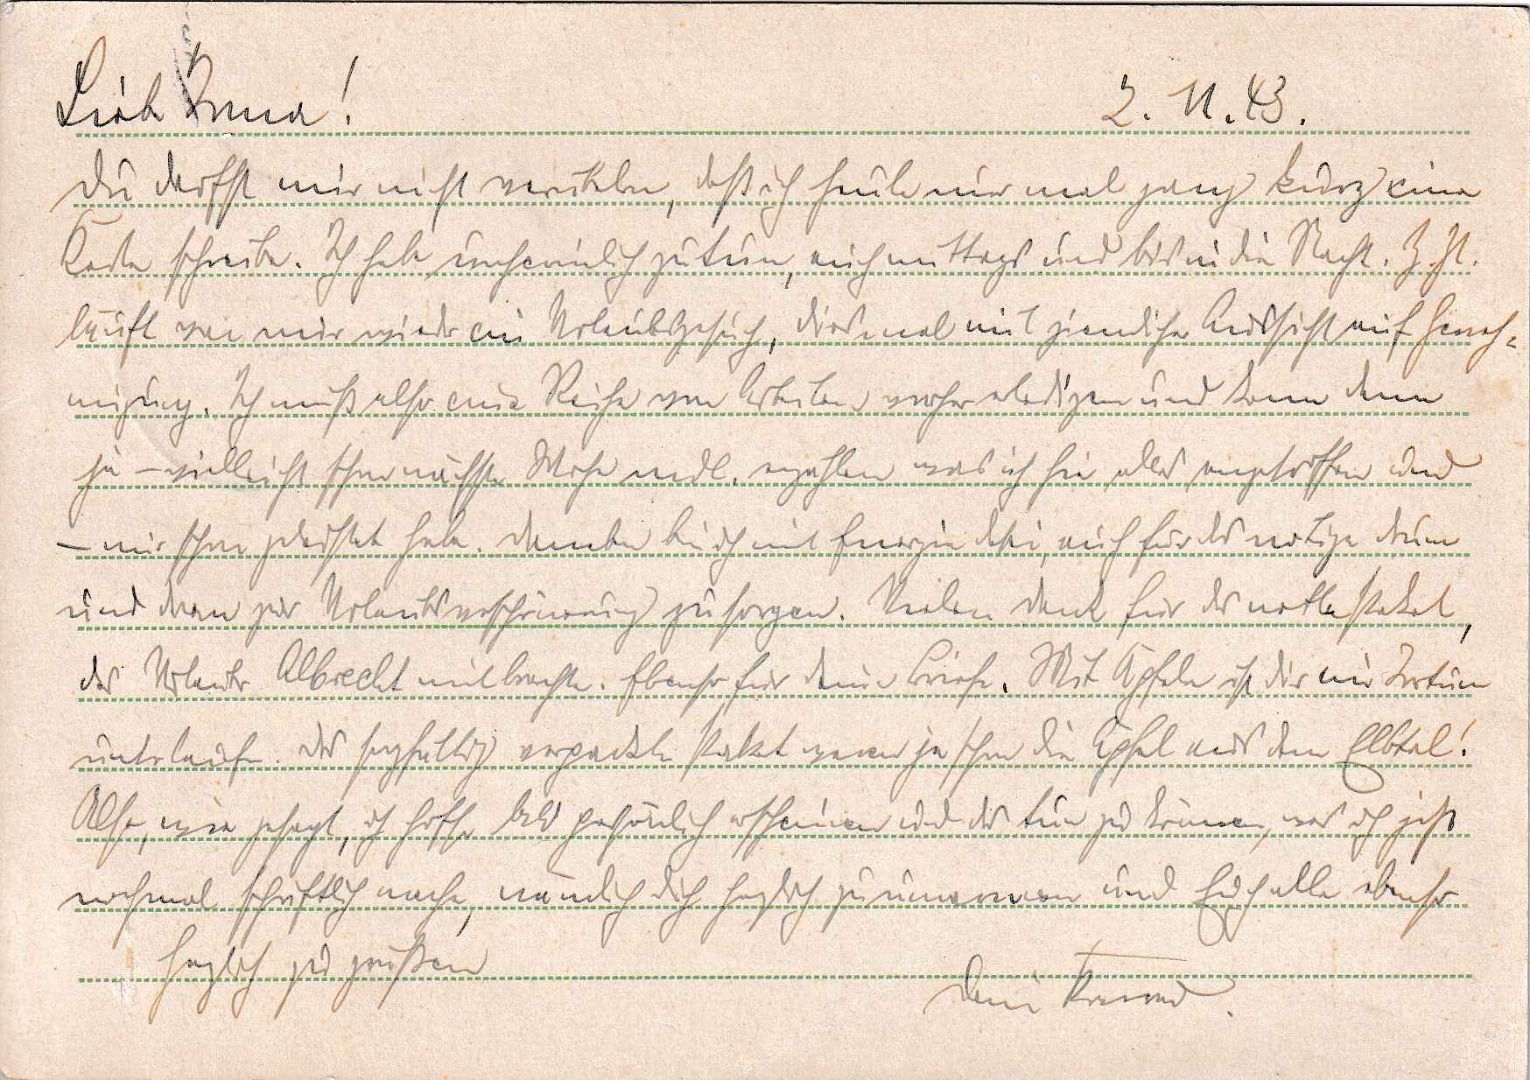 Liebe Irma! 2. 11. 43.
Du darfst mir nicht verübeln, daß ich heute nur mal ganz kurz eine
Karte schreibe. Ich habe unheimlich zu tun, auch mittags und bis in die Nacht. Z. Zt.
läuft von mir wieder ein Urlaubsgesuch, diesmal mit ziemlicher Aussicht auf Geneh-
migung. Ich muß also eine Reihe von Arbeiten vorher erledigen und kann dann
ja – vielleicht schon nächste Woche mdl. erzählen was ich hier alles angetroffen und
– mir schon geleistet habe. Daneben bin ich mit Energie dabei, auch für das nötige drum
und dran zur Urlaubsverschönerung zu sorgen. Vielen Dank für das nette Paket,
das Urlauber Albrecht mitbrachte. Ebenso für Deine Briefe. Mit Äpfeln ist dir ein Irrtum
unterlaufen. Das sorgfältig verpackte Paket waren ja schon die Äpfel aus dem Elbtal!
Also, wie gesagt, ich hoffe bald persönlich erscheinen und das tun zu können, was ich jetzt
nochmal schriftlich mache, nämlich Dich herzlich zu umarmen und Euch alle ebenso
herzlich zu grüßen
Dein